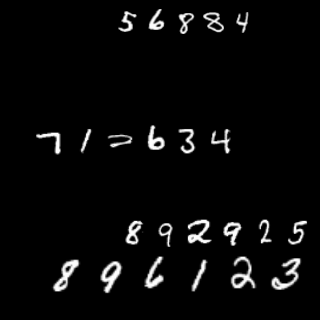 56884
71=634
892925
896123